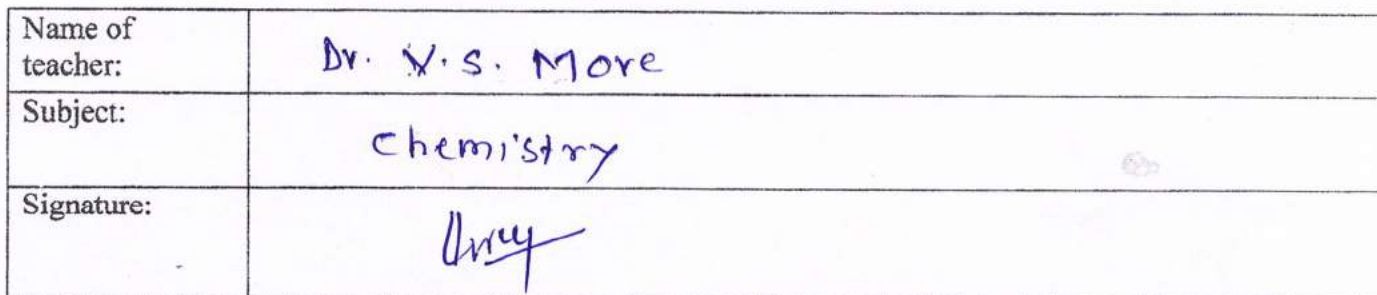 Name of
teacher:
Dr. V.S. More
Subject:
Chemistry
Signature: